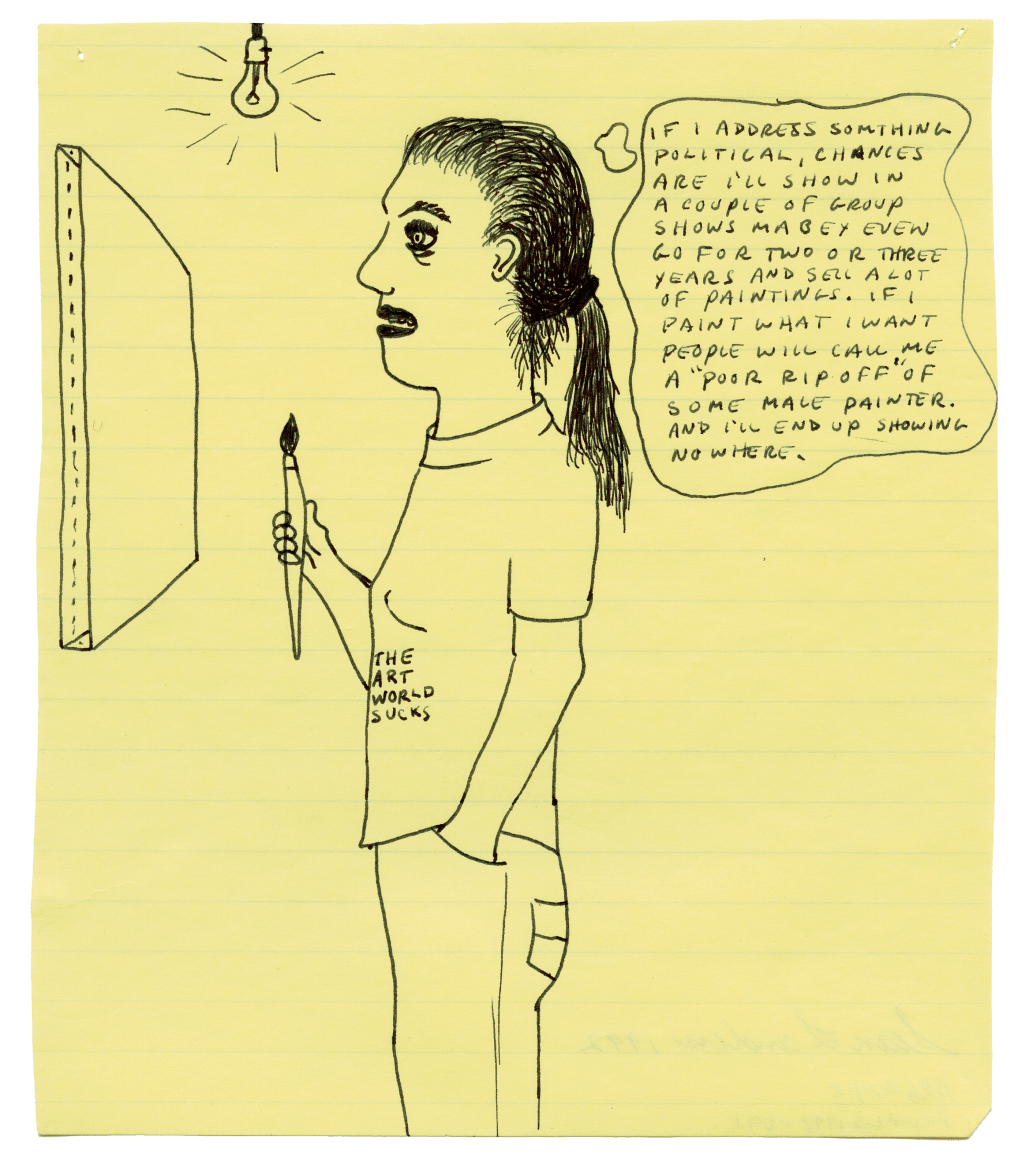 IF I ADDRESS SOMTHING
POLITICAL, CHANCES
ARE I'LL SHOW IN
A COUPLE OF GROUP
SHOWS MABEY EVEN
GO FOR TWO OR THREE
YEARS AND SELL A LOT
OF PAINTINGS. IF I
PAINT WHAT I WANT
PEOPLE WILL CALL ME
A "POOR RIP OFF" OF
SOME MALE PAINTER.
AND I'LL END UP SHOWING
NOWHERE.
THE
ART
WORLD
SUCKS